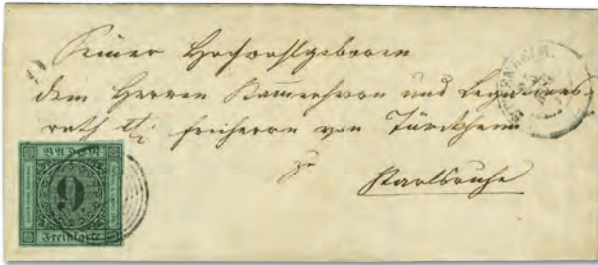 Seiner Hochwohlgeboren
dem Herren Kammerherrn und Legations-
rath freiherrn von Türckheim
zu
Karlsruhe
Baden
9
Freimarke